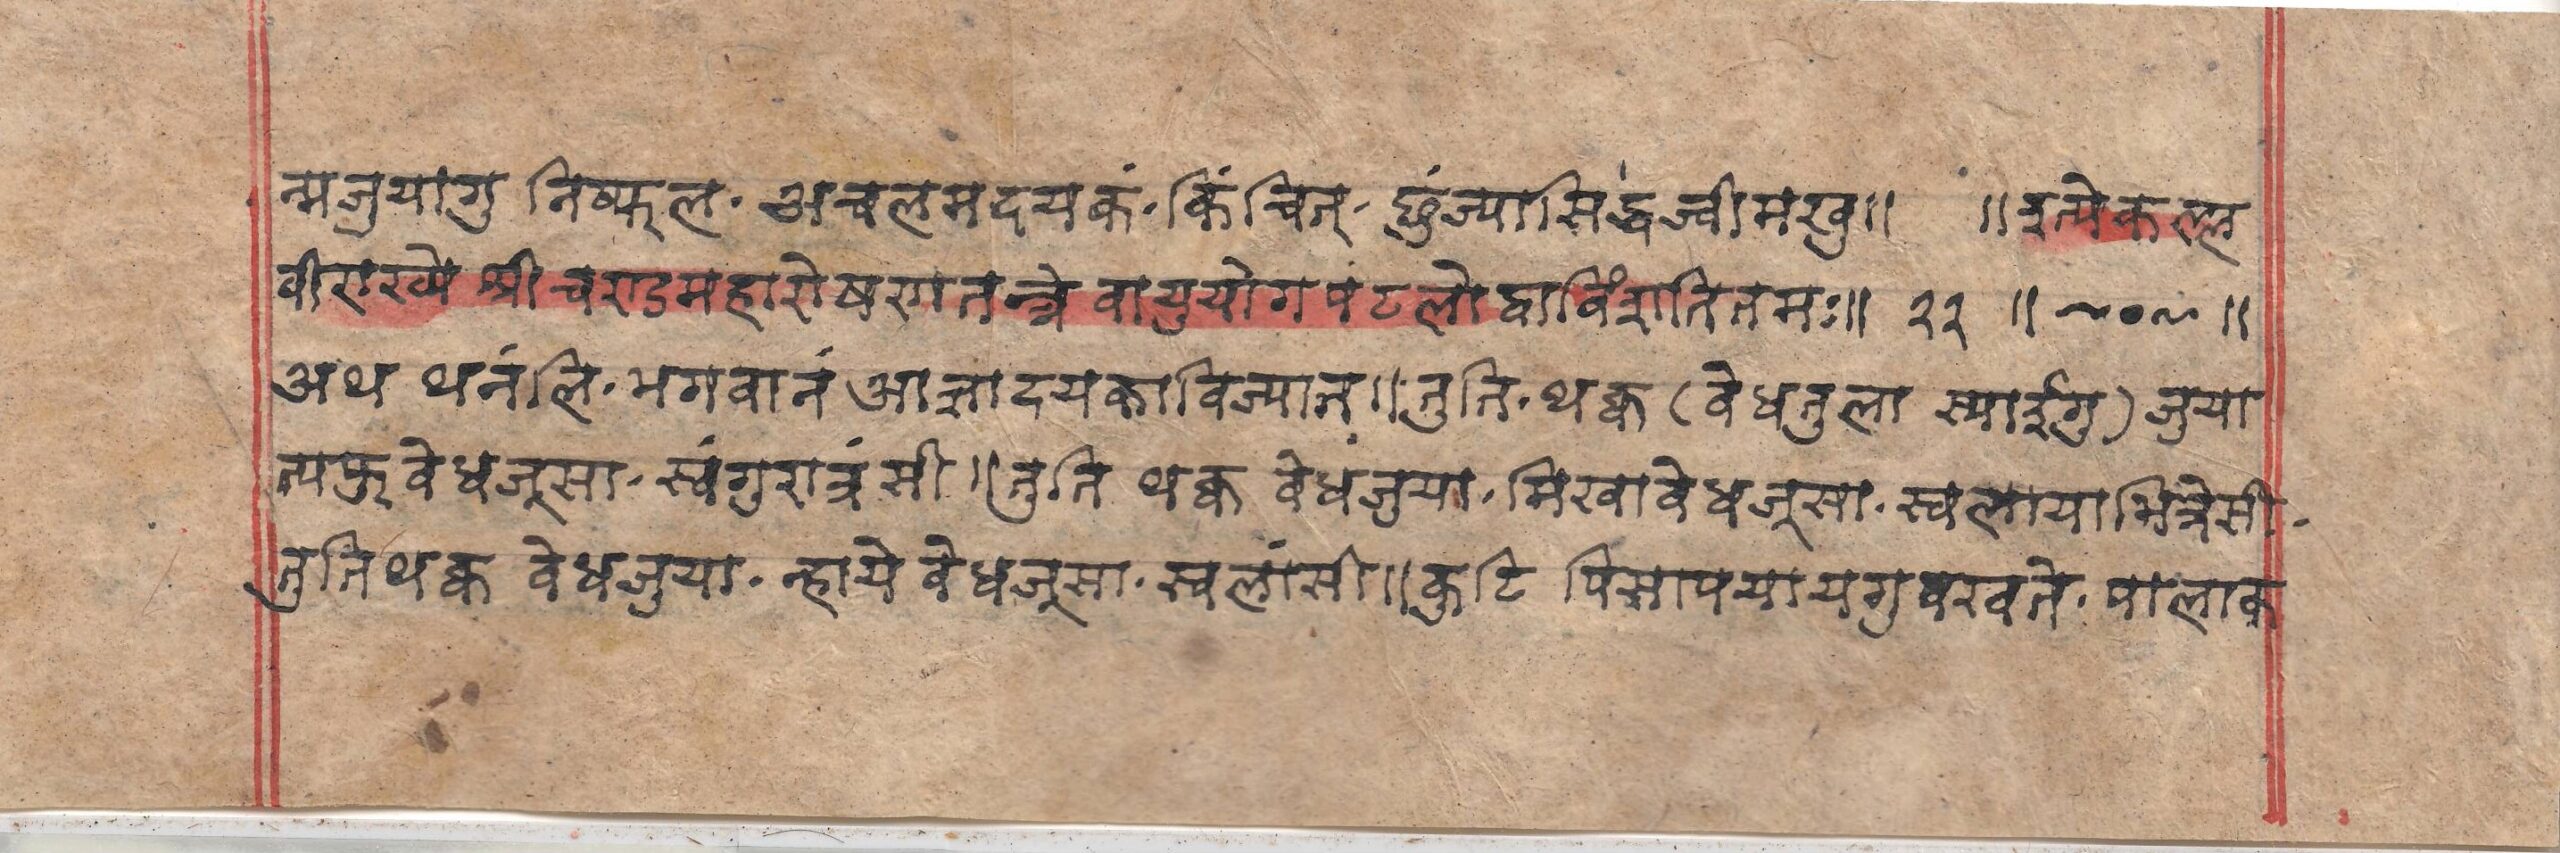 न्मजुयागु निष्फल. अचलमदयकं. किंचित्. छुंज्यासिद्धज्वीमखु॥ ॥इत्येकल्ल
वीराख्ये श्रीचण्डमहारोषणतन्त्रे वायुयोगपटलो द्वाविंशतितमः॥ २२ ॥ ~०~ ॥
अथ थनंलि. भगवानं आज्ञादयकाविज्यात॥ तुति. थक्व (वेधतुला स्याईगु) जुया
त्यफ् वेधजूसा. स्वंगुरात्रंसी॥ तुति थक्व वेधंजुया. मिखावेधजूसा. स्वलायाभित्रेसी.
तुतिथक्व वेधजुया. न्हाये वेधजूसा. स्वलांसी॥ कुटि पिसापयायगु वखते. पालाक